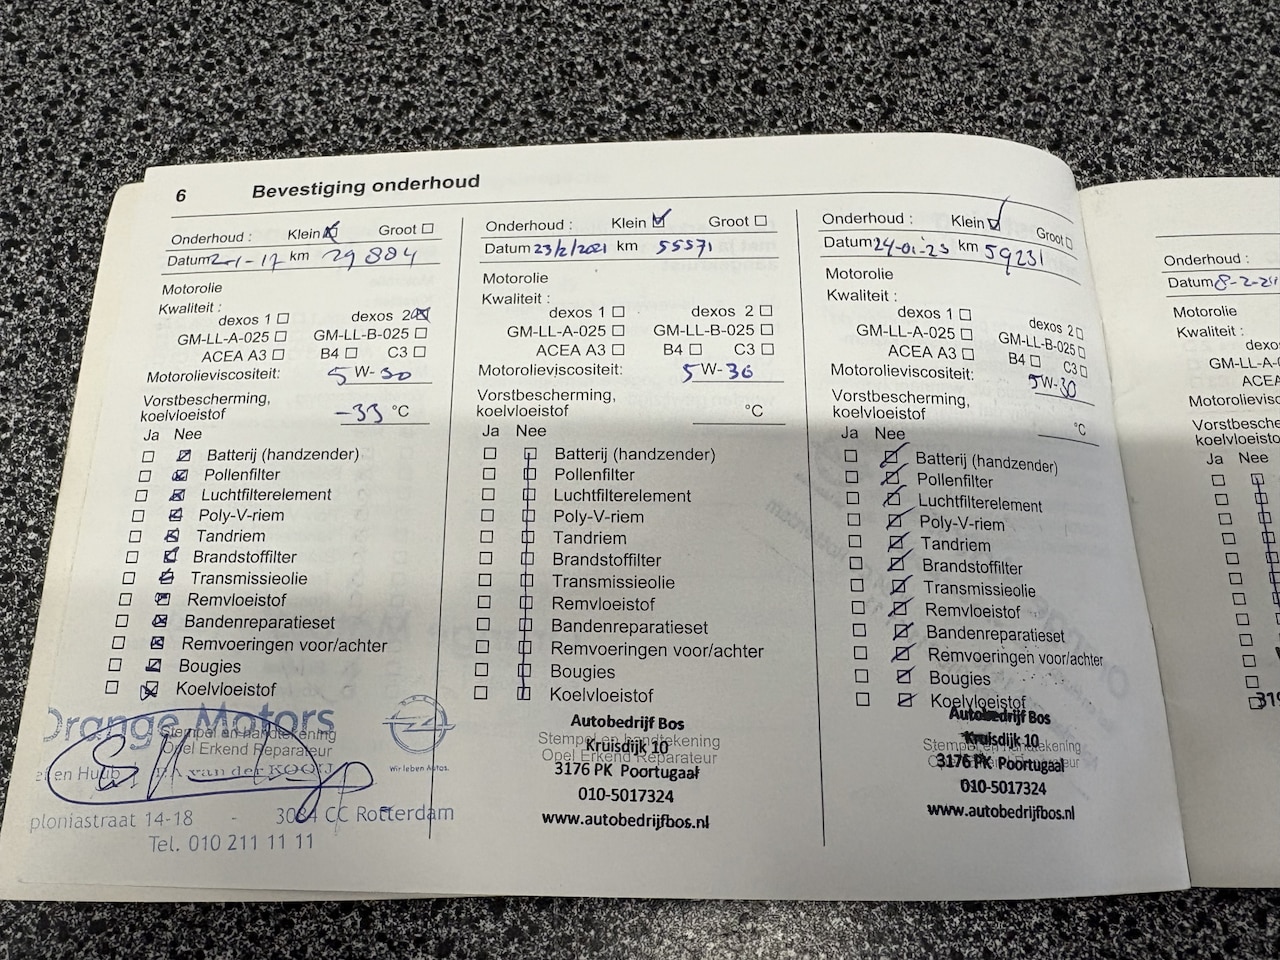 6 Bevestiging onderhoud
Onderhoud : Klein Groot
km 29884
Motorolie
Kwaliteit :
dexos 1 dexos 2
GM-LL-A-025 GM-LL-B-025
ACEA A3 B4 C3
Motorolieviscositeit: 5 W-30
Vorstbescherming,
koelvloeistof -33 °C
Ja Nee
Batterij (handzender)
Pollenfilter
Luchtfilterelement
Poly-V-riem
Tandriem
Brandstoffilter
Transmissieolie
Remvloeistof
Bandenreparatieset
Remvoeringen voor/achter
Bougies
Koelvloeistof
Orange Motors
Stempel en handtekening
Opel Erkend Reparateur
en Huub van der KOOIJ
Wir leben Autos.
ploniastraat 14-18 - 3084 CC Rotterdam
Tel. 010 211 11 11
Onderhoud : Klein Groot
Datum 23/2/2021 km 55571
Motorolie
Kwaliteit :
dexos 1 dexos 2
GM-LL-A-025 GM-LL-B-025
ACEA A3 B4 C3
Motorolieviscositeit: 5 W-30
Vorstbescherming,
koelvloeistof °C
Ja Nee
Batterij (handzender)
Pollenfilter
Luchtfilterelement
Poly-V-riem
Tandriem
Brandstoffilter
Transmissieolie
Remvloeistof
Bandenreparatieset
Remvoeringen voor/achter
Bougies
Koelvloeistof
Autobedrijf Bos
Stempel en handtekening
Kruisdijk 10
Opel Erkend Reparateur
3176 PK Poortugaal
010-5017324
www.autobedrijfbos.nl
Onderhoud : Klein Groot
Datum 24-01-23 km 59231
Motorolie
Kwaliteit :
dexos 1 dexos 2
GM-LL-A-025 GM-LL-B-025
ACEA A3 B4 C3
Motorolieviscositeit: 5W-30
Vorstbescherming,
koelvloeistof °C
Ja Nee
Batterij (handzender)
Pollenfilter
Luchtfilterelement
Poly-V-riem
Tandriem
Brandstoffilter
Transmissieolie
Remvloeistof
Bandenreparatieset
Remvoeringen voor/achter
Bougies
Koelvloeistof
Autobedrijf Bos
Kruisdijk 10
Stempel en handtekening
3176 PK Poortugaal
010-5017324
www.autobedrijfbos.nl
Onderhoud :
Datum 8-2-2
Motorolie
Kwaliteit :
dexos
GM-LL-A-
ACEA
Motorolievisc
Vorstbescherm
koelvloeisto
Ja Nee